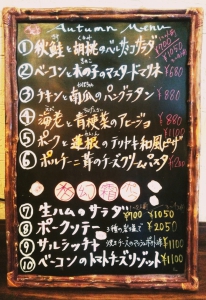 Autumn Menu
① 秋鮭と胡桃のバルサラダ ¥700 ¥1050
② ベーコンと木の子のマスタードマリネ ¥680
③ チキンと南瓜のパングラタン ¥880
④ 海老と青梗菜のアヒージョ ¥880
⑤ ポークと蓮根のテリヤキ和風ピザ
⑥ ポルチーニ茸のチーズクリームパスタ
⑦ 生ハムのサラダ ¥700 ¥1050
⑧ ポークソテー 3種の ¥2050
⑨ サルシッチャ ¥1100
⑩ ベーコンのトマトチーズリゾット ¥1100